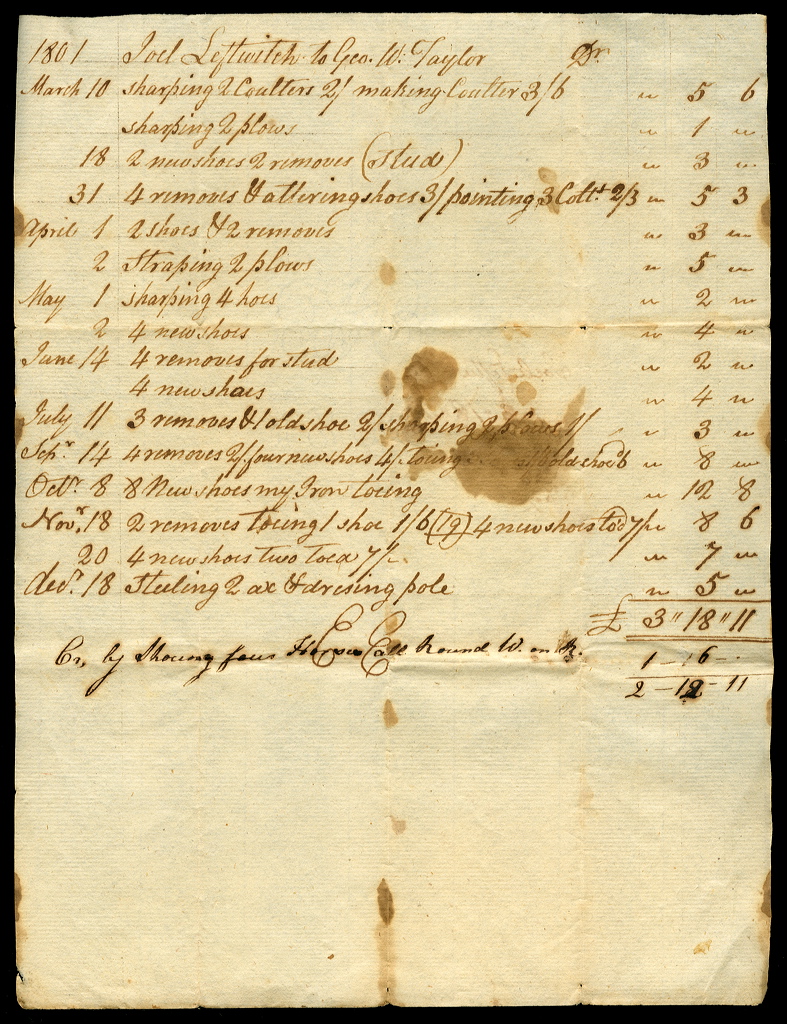 1801 Joel Leftwitch to Geo. W. Taylor Dr
March 10 sharping 2 Coulters 2/ making Coulter 3/6 " 5 6
sharping 2 plows " 1 "
18 2 new shoes 2 removes (stud) " 3 "
31 4 removes & altering shoes 3/ pointing 3 Coltr 2/3 " 5 3
April 1 2 shoes & 2 removes " 3 "
2 Straping 2 plows " 5 "
May 1 sharping 4 hoes " 2 "
2 4 new shoes " 4 "
June 14 4 removes for stud " 2 "
4 new shoes " 4 "
July 11 3 removes & 1 old shoe 2/ sharping 2 plows 1/ " 3 "
Sepr 14 4 removes 2/ four new shoes 4/ toeing old shoe " 8 "
Octr 8 8 New shoes my Iron toeing " 12 8
Novr 18 2 removes toeing 1 shoe 1/6 (19) 4 new shoes toed 7/ " 8 6
20 4 new shoes two toed 7/ " 7 "
decr 18 Steeling 2 ax & dresing pole " 5 "
£ 3 " 18 " 11
Cr, by Shoung four Horses all Round 1 - 6 -
2 - 12 - 11